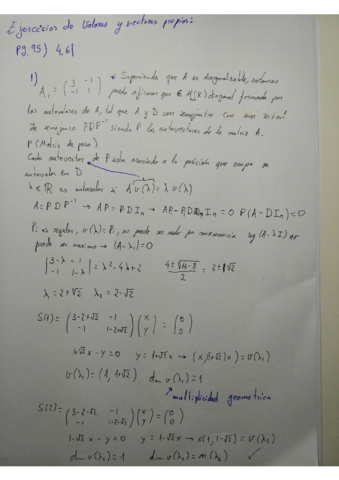 Ejercicios de Valores y vectores propios:
Pg. 95) 4,61
1) A₁ = (3 -1 / -1 1) * Suponiendo que A es diagonalizable, entonces
puedo afirmar que ∈ M(K) diagonal formada por
los autovalores de A, tal que A y D son semejantes con
de semejanza PDP⁻¹ siendo P los autovectores de la matriz A.
P (Matriz de paso).
Cada autovector de P esta asociado a la posición que ocupa su
autovalor en D.
λ ∈ R es autovalor si A v(λ) = λ v(λ)
A = P D P⁻¹ → AP = P D Iₙ → AP - P D Iₙ = 0 P(A - DIₙ) = 0
Pᵢ as regulos, v(λ) = Pᵢ, no puede ser nulo por rg(A - λI) no
puede ser maximo → |A - λI| = 0
|3-λ -1 / -1 1-λ| = λ² - 4λ + 2 (4 ± √(16-8))/2 = 2 ± √2
λ₁ = 2+√2 λ₂ = 2-√2
S(1) = (3-2+√2 -1 / -1 1-2+√2) (x / y) = (0 / 0)
1+√2 x - y = 0 y = 1+√2 x → (x, (1+√2)x) = v(λ₁)
v(λ₁) = (1, 1+√2) dim v(λ₁) = 1
multiplicidad geometrica
S(2) = (3-2-√2 -1 / -1 1-2-√2) (x / y) = (0 / 0)
1-√2 x - y = 0 y = 1-√2 x → x(1, 1-√2) = v(λ₂)
dim v(λ₂) = 1 dim v(λ₂) = m(λ₂) ✓